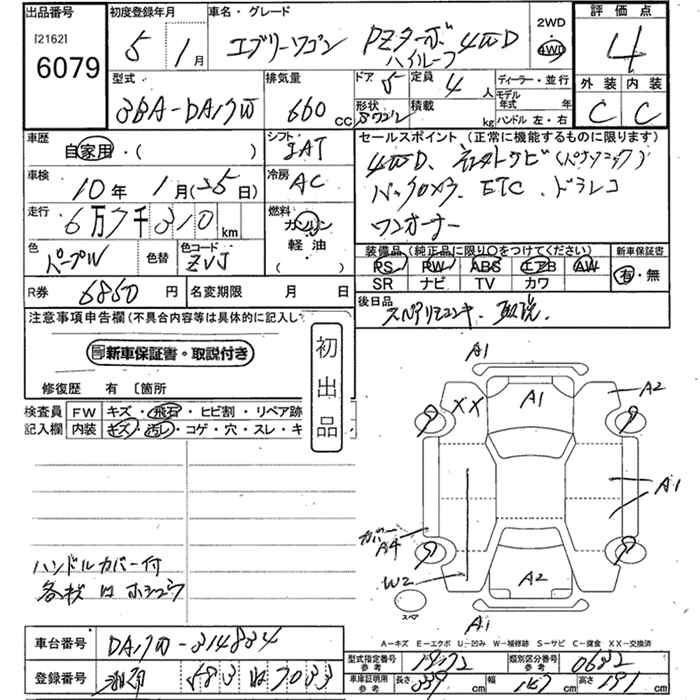 出品番号 初度登録年月 車名・グレード 2WD 評価点
[2162] 6079 5 1月 エブリーワゴン PZターボ 4WD ハイルーフ 4WD 4
型式 排気量 ドア 5 定員 4人 ディーラー・並行 外装 内装
3BA-DA17W 660cc 形状 積載 kg モデル年式 年 ハンドル 左・右 C C
車歴 自家用・( ) シフト セールスポイント (正常に機能するものに限ります)
車検 10年 1月(25日) 冷房 AC 4WD、(パナソニック)
バックカメラ、ETC、ドラレコ
走行 6万7千310km 燃料 ガソリン 軽油 ( ) ワンオーナー
色 パープル 色替 色コード ZVJ 装備品(純正品に限り○をつけてください) 新車保証書
PS PW ABS エアB AW 有・無
SR ナビ TV カワ
R券 6850円 名変期限 月 日 後日品 スペアリモコンキー、取説
注意事項申告欄(不具合内容等は具体的に記入し
新車保証書・取説付き
初出品
修復歴 有 〔箇所
検査員記入欄 FW キズ・飛石・ヒビ割・リペア跡
内装 キズ・汚レ・コゲ・穴・スレ・キ
A1
A1 A2
XX
A1
カバー A4
W2 A2
スペア
A1
ハンドルカバー付
A-キズ E-エクボ U-凹み W-補修跡 S-サビ C-腐食 XX-交換済
車台番号 DA17W-314834 型式指定番号 参考 19172 類別区分番号 参考 0632
登録番号 583 7033 車庫証明用 参考 長さ 339cm 幅 147cm 高さ 191cm